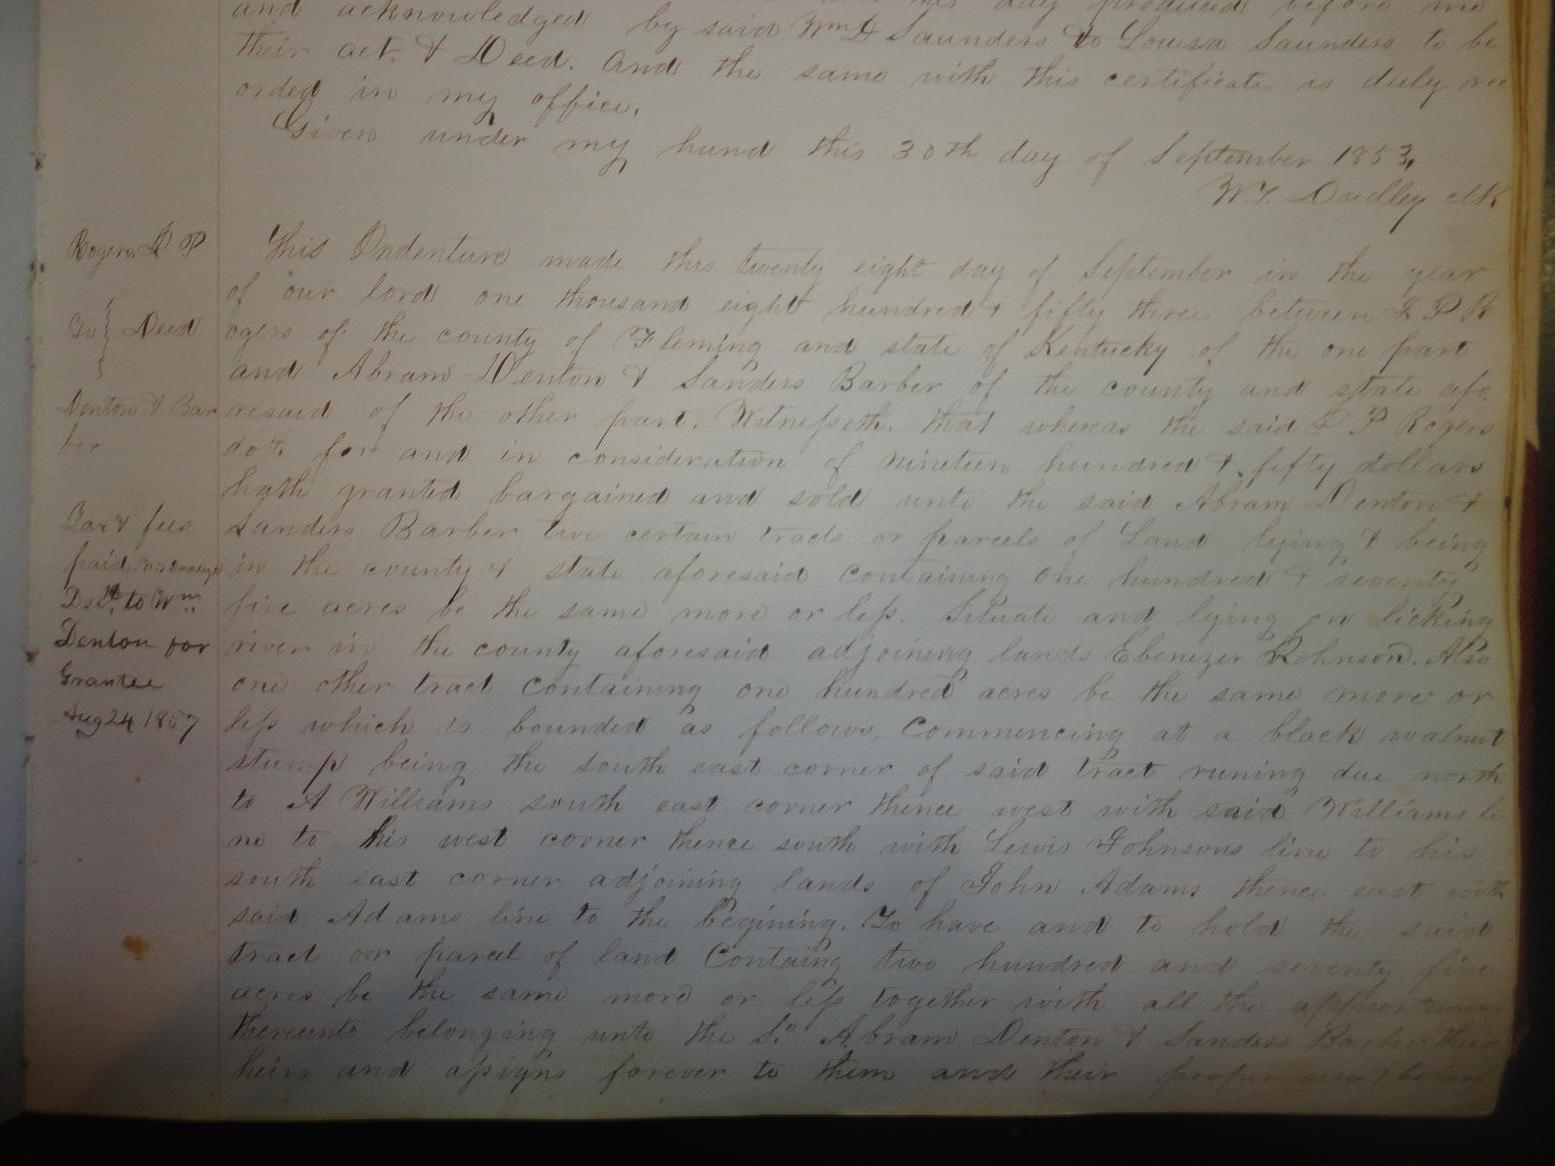 and acknowledged by said Wm H Saunders & Louisa Saunders to be
their act. & Deed. And the same with this certificate is duly rec
orded in my office.
Given under my hand this 30th day of September 1853.
W.T. Dudley clk
Rogers
To Deed
Denton & Bar
ber
Tax & fees
paid
Deld to Wm
Denton for
Grantee
Aug 24 1857
This Indenture made this twenty eight day of September in the year
of our lord one thousand eight hundred & fifty three between P R
ogers of the county of Fleming and state of Kentucky of the one part
and Abram Denton & Sanders Barber of the county and state afo
resaid of the other part. Witnesseth. that whereas the said P Rogers
doth for and in consideration of nineteen hundred & fifty dollars
hath granted bargained and sold unto the said Abram Denton &
Sanders Barber two certain tracts or parcels of Land lying & being
in the county & state aforesaid containing one hundred & seventy
five acres be the same more or less. Situate and lying on licking
river in the county aforesaid adjoining lands Ebenezer Rohnson. Also
one other tract containing one hundred acres be the same more or
less which is bounded as follows. Commencing at a black walnut
stump being the south east corner of said tract runing due north
to A Williams south east corner thence west with said Williams li
ne to his west corner thence south with Lewis Johnsons line to his
south east corner adjoining lands of John Adams thence east with
said Adams line to the begining. To have and to hold the said
tract or parcel of land Containg two hundred and seventy five
acres be the same more or less together with all the appurtenances
thereunto belonging unto the Sd Abram Denton & Sanders Barber their
heirs and assigns forever to them and their proper use & behoof